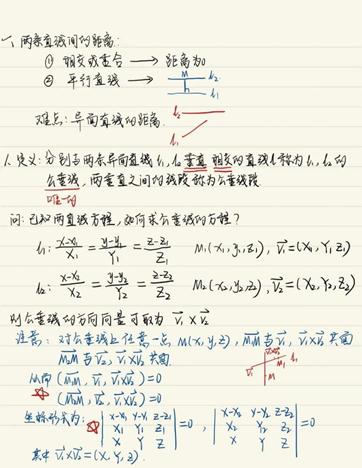 一、两条直线间的距离:
① 相交或重合 → 距离为0
② 平行直线 → M h l₂ l₁
难点: 异面直线的距离. l₂ l₁
1. 定义: 分别与两条异面直线 l₁, l₂ 垂直相交的直线 l 称为 l₁, l₂ 的
公垂线, 两垂直之间的线段称为公垂线段
唯一的
问: 已知两直线方程, 如何求公垂线的方程?
l₁: (x-x₁)/X₁ = (y-y₁)/Y₁ = (z-z₁)/Z₁ M₁(x₁, y₁, z₁), v⃗₁=(X₁, Y₁, Z₁)
l₂: (x-x₂)/X₂ = (y-y₂)/Y₂ = (z-z₂)/Z₂ M₂(x₂, y₂, z₂), v⃗₂=(X₂, Y₂, Z₂)
则公垂线的方向向量可取为 v⃗₁ × v⃗₂
注意: 对公垂线上任意一点, M(x, y, z), M₁M 与 v⃗₁, v⃗₁×v⃗₂ 共面
M₂M 与 v⃗₂, v⃗₁×v⃗₂ 共面.
从而 (M₁M, v⃗₁, v⃗₁×v⃗₂)=0
☆ (M₂M, v⃗₂, v⃗₁×v⃗₂)=0
坐标形式为: ☆ |x-x₁ y-y₁ z-z₁| =0, |x-x₂ y-y₂ z-z₂| =0
|X₁ Y₁ Z₁| |X₂ Y₂ Z₂|
|X Y Z| |X Y Z|
其中 v⃗₁×v⃗₂=(X, Y, Z).